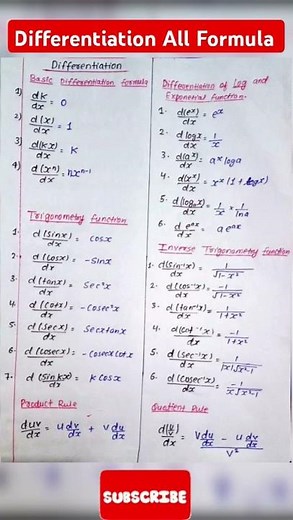 Differentiation All Formula
Differentiation
Basic Differentiation formula
1) dk/dx = 0
2) d(x)/dx = 1
3) d(kx)/dx = K
4) d(xⁿ)/dx = nxⁿ⁻¹
Trigonometry function
1. d(sinx)/dx = cosx
2. d(cosx)/dx = -sinx
3. d(tanx)/dx = Sec²x
4. d(cotx)/dx = -cosec²x
5. d(secx)/dx = Secxtanx
6. d(cosecx)/dx = -cosecxcotx
7. d(sinkx)/dx = K cosx
Product Rule
duv/dx = u dv/dx + v du/dx
Differentiation of log and
Exponential function.
1. d(eˣ)/dx = eˣ
2. dlogx/dx = 1/x
3. d(aˣ)/dx = aˣ loga
4. d(xˣ)/dx = xˣ(1+logx)
5. d(logₐx)/dx = 1/x · 1/lna
6. d eᵃˣ/dx = a eᵃˣ
Inverse Trigonometry function
1. d(sin⁻¹x)/dx = 1/√1-x²
2. d(cos⁻¹x)/dx = -1/√1-x²
3. d(tan⁻¹x)/dx = 1/1+x²
4. d(cot⁻¹x)/dx = -1/1+x²
5. d(sec⁻¹x)/dx = 1/|x|√x²-1
6. d(cosec⁻¹x)/dx = -1/x√x²-1
Quotient Rule
d(u/v)/dx = (v du/dx - u dv/dx)/v²
SUBSCRIBE